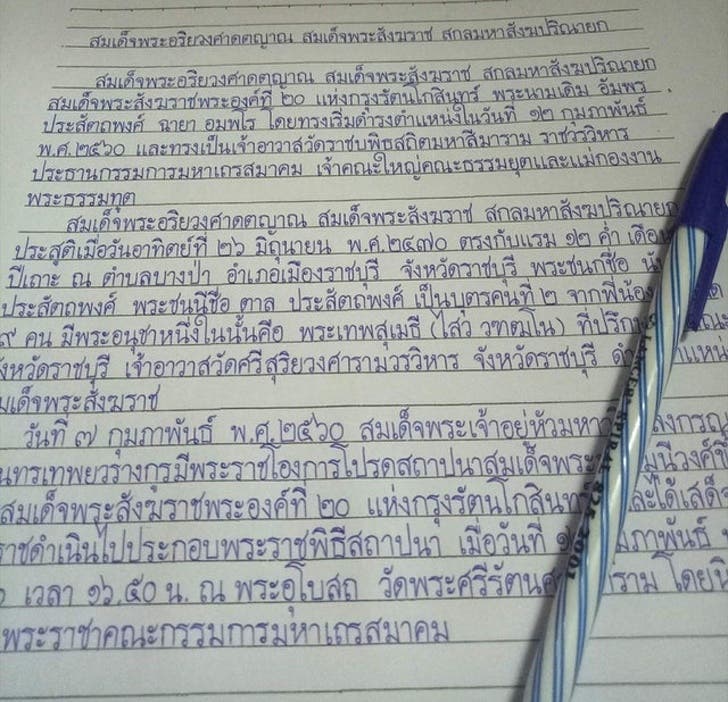 สมเด็จพระอริยวงศาคตญาณ สมเด็จพระสังฆราช สกลมหาสังฆปริณายก
สมเด็จพระอริยวงศาคตญาณ สมเด็จพระสังฆราช สกลมหาสังฆปริณายก
สมเด็จพระสังฆราชพระองค์ที่ ๒๐ แห่งกรุงรัตนโกสินทร์ พระนามเดิม อัมพร
ประสัตถพงศ์ ฉายา อมฺพโร โดยทรงเริ่มดำรงตำแหน่งในวันที่ ๑๒ กุมภาพันธ์
พ.ศ.๒๕๖๐ และทรงเป็นเจ้าอาวาสวัดราชบพิธสถิตมหาสีมาราม ราชวรวิหาร
ประธานกรรมการมหาเถรสมาคม เจ้าคณะใหญ่คณะธรรมยุตและแม่กองงาน
พระธรรมทูต
สมเด็จพระอริยวงศาคตญาณ สมเด็จพระสังฆราช สกลมหาสังฆปริณายก
ประสูติเมื่อวันอาทิตย์ที่ ๒๖ มิถุนายน พ.ศ.๒๔๗๐ ตรงกับแรม ๑๒ ค่ำ เดือน
ปีเถาะ ณ ตำบลบางป่า อำเภอเมืองราชบุรี จังหวัดราชบุรี พระชนกชื่อ
ประสัตถพงศ์ พระชนนีชื่อ ตาล ประสัตถพงศ์ เป็นบุตรคนที่ ๒ จากพี่น้อง
๙ คน มีพระอนุชาหนึ่งในนั้นคือ พระเทพสุเมธี (ไสว วฑฺฒโน) ที่
จังหวัดราชบุรี เจ้าอาวาสวัดศรีสุริยวงศารามวรวิหาร จังหวัดราชบุรี
มเด็จพระสังฆราช
วันที่ ๗ กุมภาพันธ์ พ.ศ.๒๕๖๐ สมเด็จพระเจ้าอยู่หัวมหา ลงกรณ
นทรเทพยวรางกูรมีพระราชโองการโปรดสถาปนาสมเด็จพระ มุนีวงศ์
สมเด็จพระสังฆราชพระองค์ที่ ๒๐ แห่งกรุงรัตนโกสินทร์ และได้เสด็จ
ราชดำเนินไปประกอบพระราชพิธีสถาปนา เมื่อวันที่ มภาพันธ์
เวลา ๑๖.๕๐ น. ณ พระอุโบสถ วัดพระศรีรัตน าราม โดย
พระราชาคณะกรรมการมหาเถรสมาคม